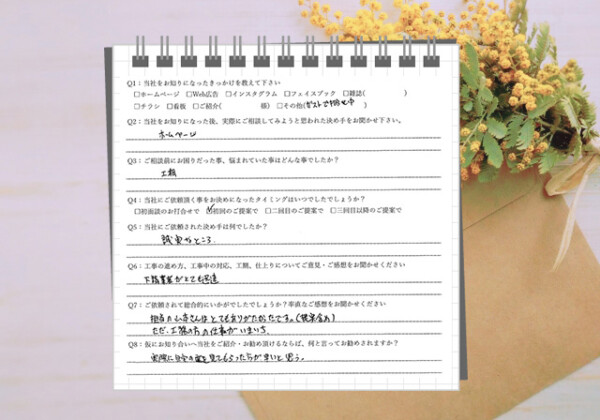 Q1：当社をお知りになったきっかけを教えて下さい
□ホームページ □Web広告 □インスタグラム □フェイスブック □雑誌( )
□チラシ □看板 □ご紹介( 様) □その他( )
Q2：当社をお知りになった後、実際にご相談してみようと思われた決め手をお聞かせ下さい。
ホームページ
Q3：ご相談前にお困りだった事、悩まれていた事はどんな事でしたか？
工期
Q4：当社にご依頼頂く事をお決めになったタイミングはいつでしたでしょうか？
□初面談のお打合せで ☑初回のご提案で □二回目のご提案で □三回目以降のご提案で
Q5：当社にご依頼された決め手は何でしたか？
誠実なところ
Q6：工事の進め方、工事中の対応、工期、仕上りについてご意見・ご感想をお聞かせください
がとても
Q7：ご依頼されて総合的にいかがでしたでしょうか？率直なご感想をお聞かせください
担当の さんはとてもありがたかったです。
ただ、工 の方の仕事がいまいち
Q8：仮にお知り合いへ当社をご紹介・お勧め頂けるならば、何と言ってお勧めされますか？
実際に を見てもらった方が早いと思う。